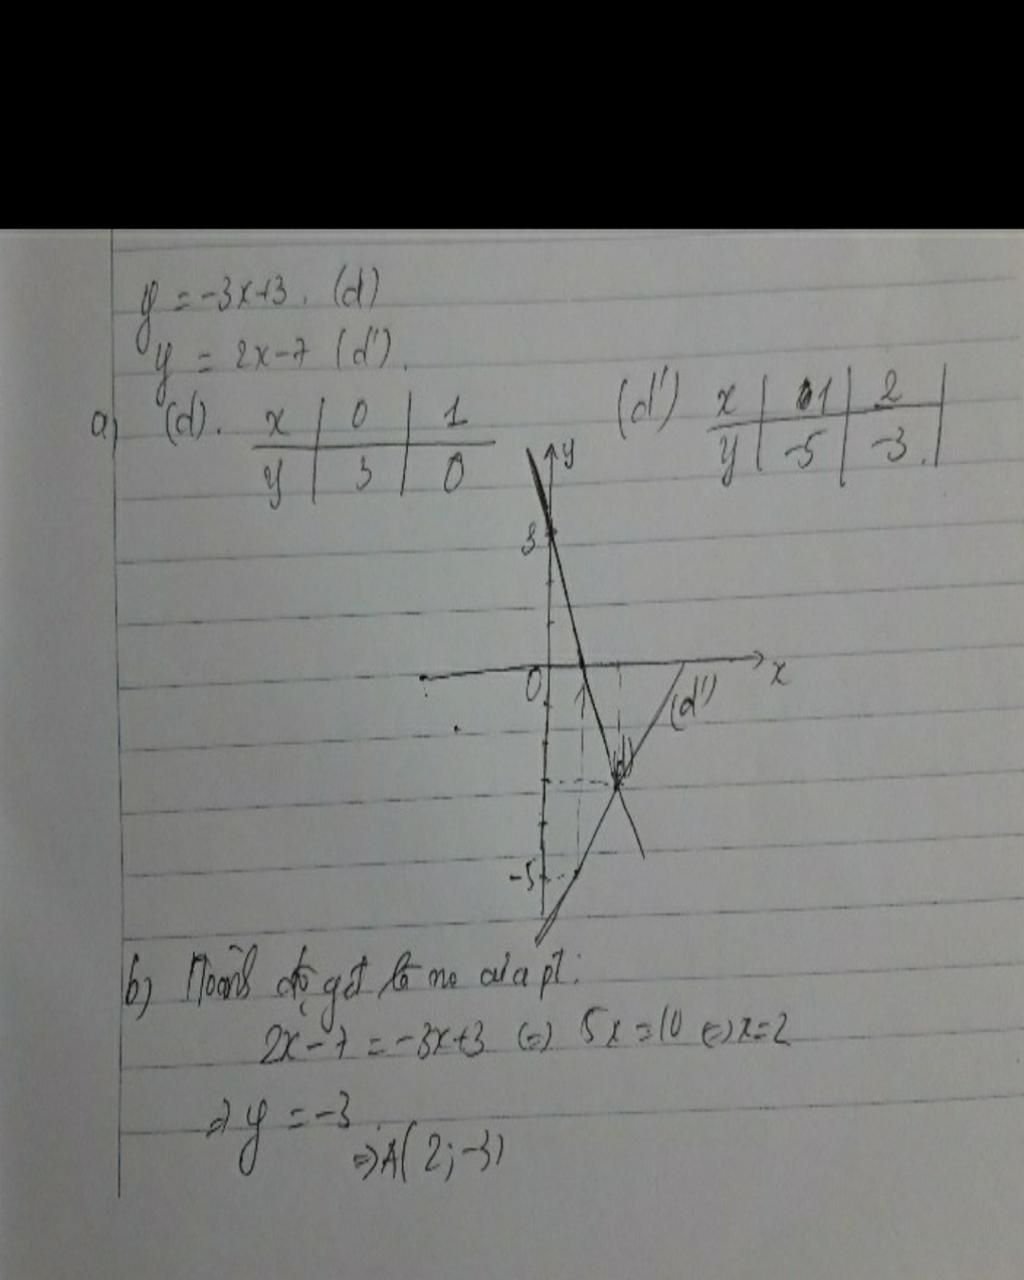 y = -3x+3. (d)
y = 2x-7 (d').
a) (d). x | 0 | 1
y | 3 | 0
(d') x | 1 | 2
y | -5 | -3.
y
3
0
1
x
(d')
(d)
-5
b) Hoành độ gđ là no của pt:
2x-7 = -3x+3 (=) 5x=10 (=) x=2
=> y = -3.
=> A(2;-3)